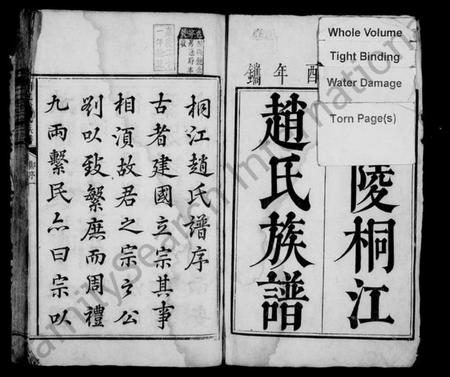 Whole Volume
Tight Binding
Water Damage
Torn Page(s)
酉年鐫
陵桐江
趙氏族譜
桐江趙氏譜序
古者建國立宗其事
相湏故君之宗之公
剐以致繁庶而周禮
九兩繫民亦曰宗以
FamilySearch International